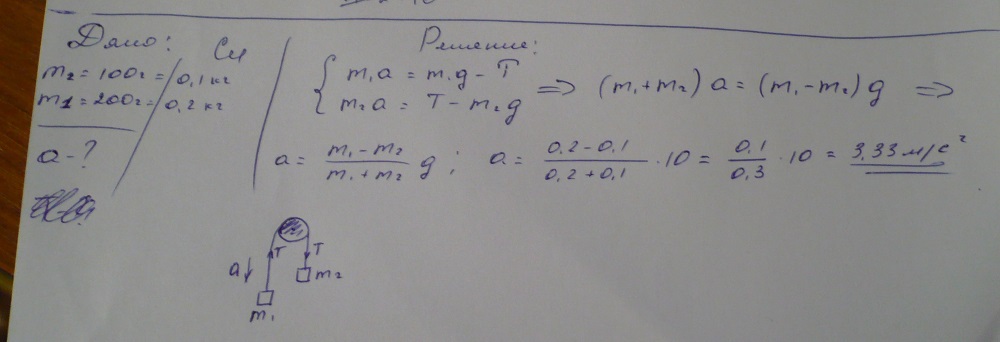 Дано:
Си
m₂ = 100г = 0,1 кг
m1 = 200г = 0,2 кг
a - ?
Решение:
{ m₁a = m₁g - T
m₂a = T - m₂g
=> (m₁+m₂) a = (m₁-m₂) g =>
a = (m₁ - m₂)/(m₁ + m₂) g ; a = (0,2 - 0,1)/(0,2 + 0,1) · 10 = 0,1/0,3 · 10 = 3,33 м/с²
a↓ T T
m₂
m₁